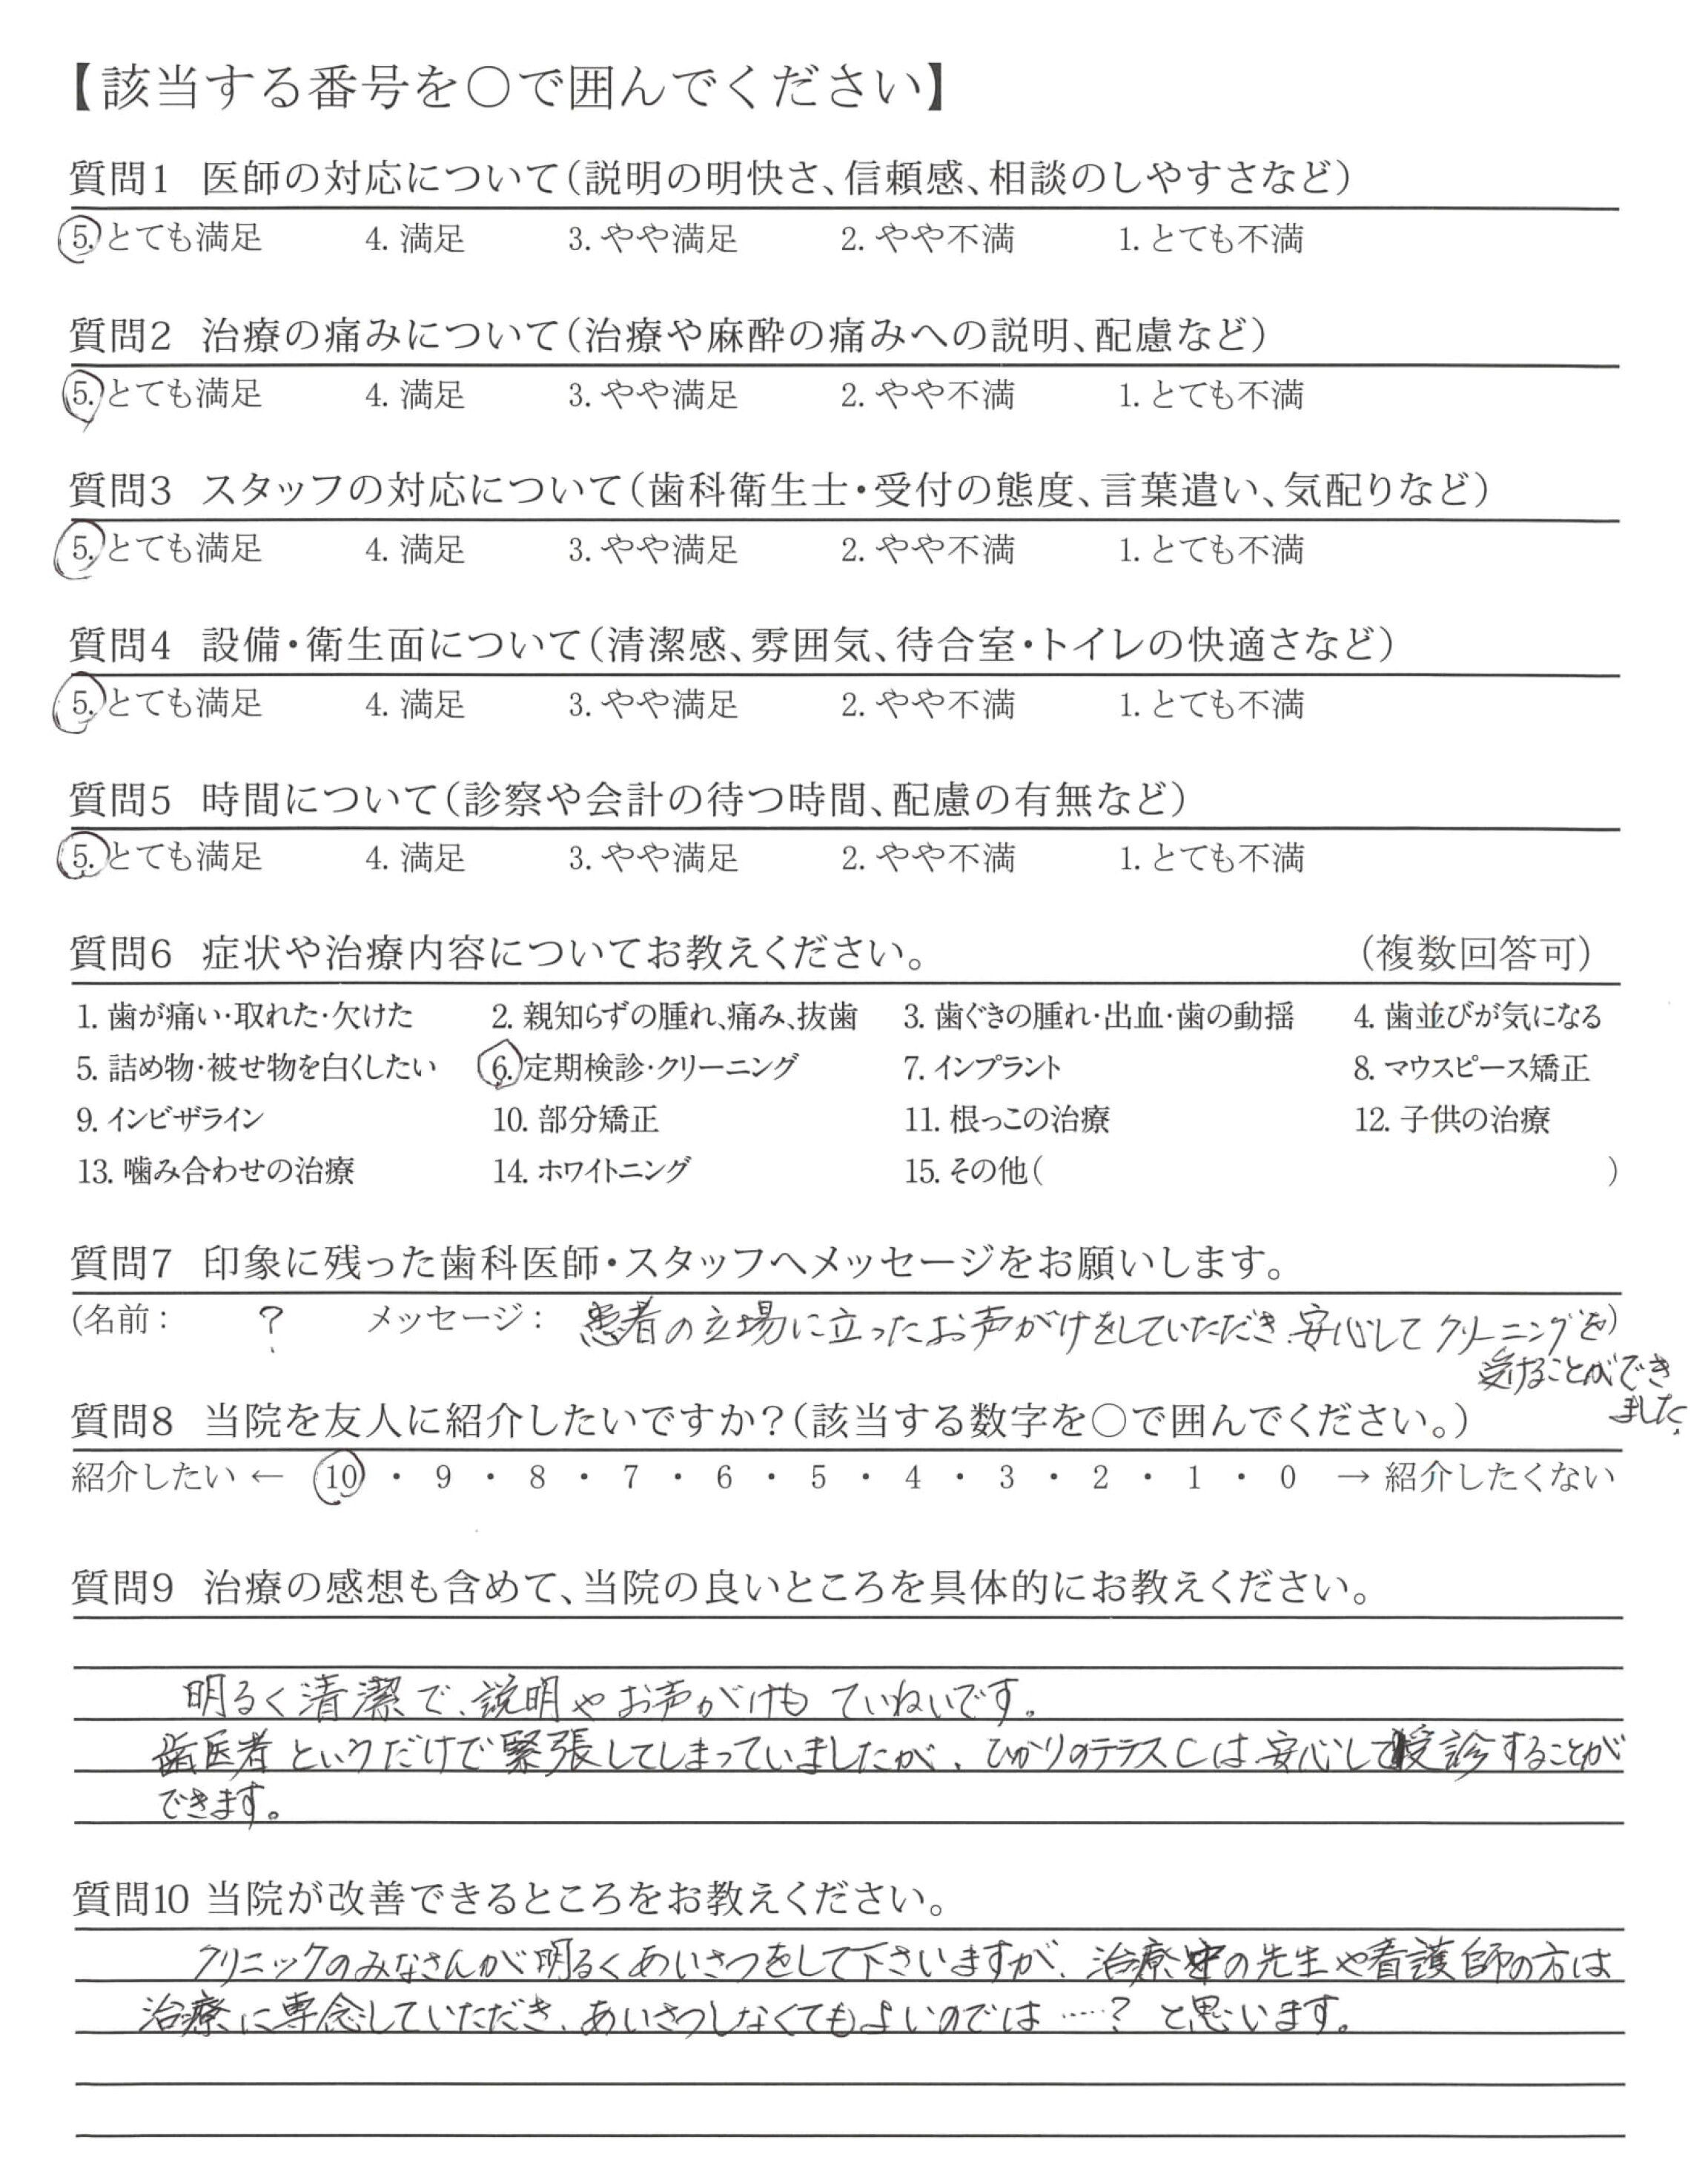 【該当する番号を○で囲んでください】
質問1 医師の対応について(説明の明快さ、信頼感、相談のしやすさなど)
5. とても満足 4. 満足 3. やや満足 2. やや不満 1. とても不満
質問2 治療の痛みについて(治療や麻酔の痛みへの説明、配慮など)
5. とても満足 4. 満足 3. やや満足 2. やや不満 1. とても不満
質問3 スタッフの対応について(歯科衛生士・受付の態度、言葉遣い、気配りなど)
5. とても満足 4. 満足 3. やや満足 2. やや不満 1. とても不満
質問4 設備・衛生面について(清潔感、雰囲気、待合室・トイレの快適さなど)
5. とても満足 4. 満足 3. やや満足 2. やや不満 1. とても不満
質問5 時間について(診察や会計の待つ時間、配慮の有無など)
5. とても満足 4. 満足 3. やや満足 2. やや不満 1. とても不満
質問6 症状や治療内容についてお教えください。 (複数回答可)
1. 歯が痛い・取れた・欠けた 2. 親知らずの腫れ、痛み、抜歯 3. 歯ぐきの腫れ・出血・歯の動揺 4. 歯並びが気になる
5. 詰め物・被せ物を白くしたい 6. 定期検診・クリーニング 7. インプラント 8. マウスピース矯正
9. インビザライン 10. 部分矯正 11. 根っこの治療 12. 子供の治療
13. 噛み合わせの治療 14. ホワイトニング 15. その他( )
質問7 印象に残った歯科医師・スタッフへメッセージをお願いします。
(名前: ? メッセージ: 患者の立場に立ったお声がけをしていただき、安心してクリーニングを)
受けることができ
ました。
質問8 当院を友人に紹介したいですか?(該当する数字を○で囲んでください。)
紹介したい ← 10 ・ 9 ・ 8 ・ 7 ・ 6 ・ 5 ・ 4 ・ 3 ・ 2 ・ 1 ・ 0 → 紹介したくない
質問9 治療の感想も含めて、当院の良いところを具体的にお教えください。
明るく清潔で、説明やお声がけもていねいです。
歯医者というだけで緊張してしまっていましたが、ひかりのテラスCは、安心して受診することが
できます。
質問10 当院が改善できるところをお教えください。
クリニックのみなさんが明るくあいさつをして下さいますが、治療中の先生や看護師の方は
治療に専念していただき、あいさつしなくてもよいのでは……? と思います。